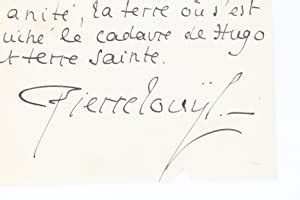 anité, la terre où s'est
uché le cadavre de Hugo
t terre sainte.
Pierre Louÿs